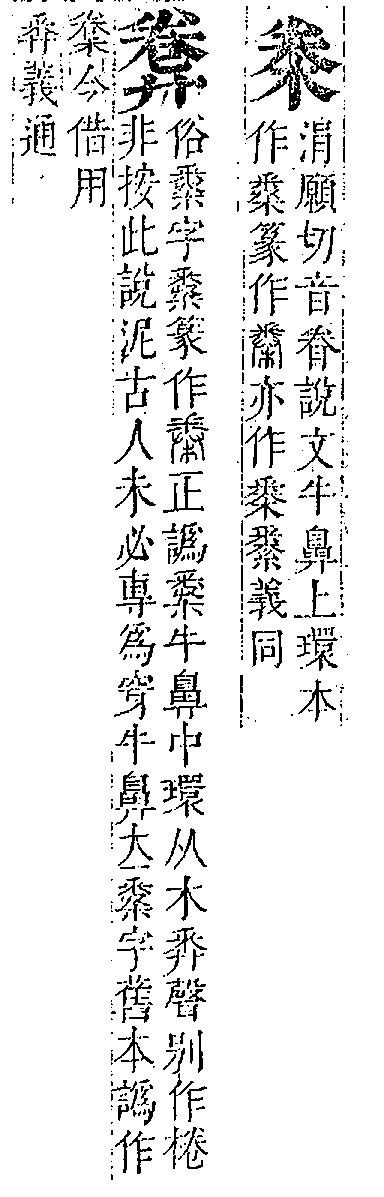 桊
涓願切音眷說文牛鼻上環本
作桊篆作亦作桊義同
俗桊字桊篆作正譌桊牛鼻中環从木𢍏聲别作棬
非按此說泥古人未必專為穿牛鼻大桊字舊本譌作
桊今借用
𢍏義通